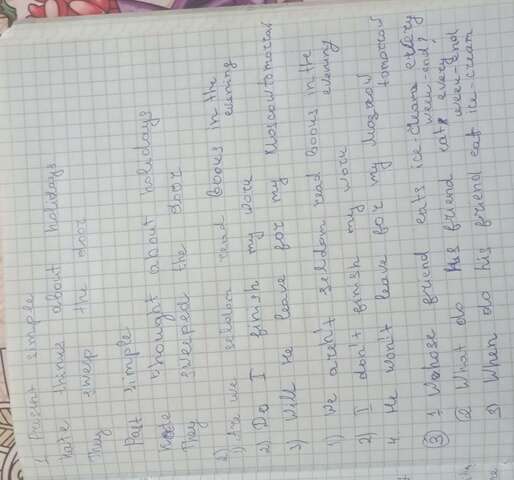 1. Present simple
Kate thinks about holidays
They sweep the door
Past simple
Kate thought about holidays
They sweeped the door
2)
1) Are we seldom read books in the evening
2) Do I finish my work
3) Will He leave for my Moscow tomorrow
1) We aren't seldom read books in the evening
2) I don't finish my work
4 He won't leave for my Moscow tomorrow
3) 1 Whose friend eats ice-cream every week-end?
2) What do his friend eats every week-end
3) When do his friend eat ice-cream